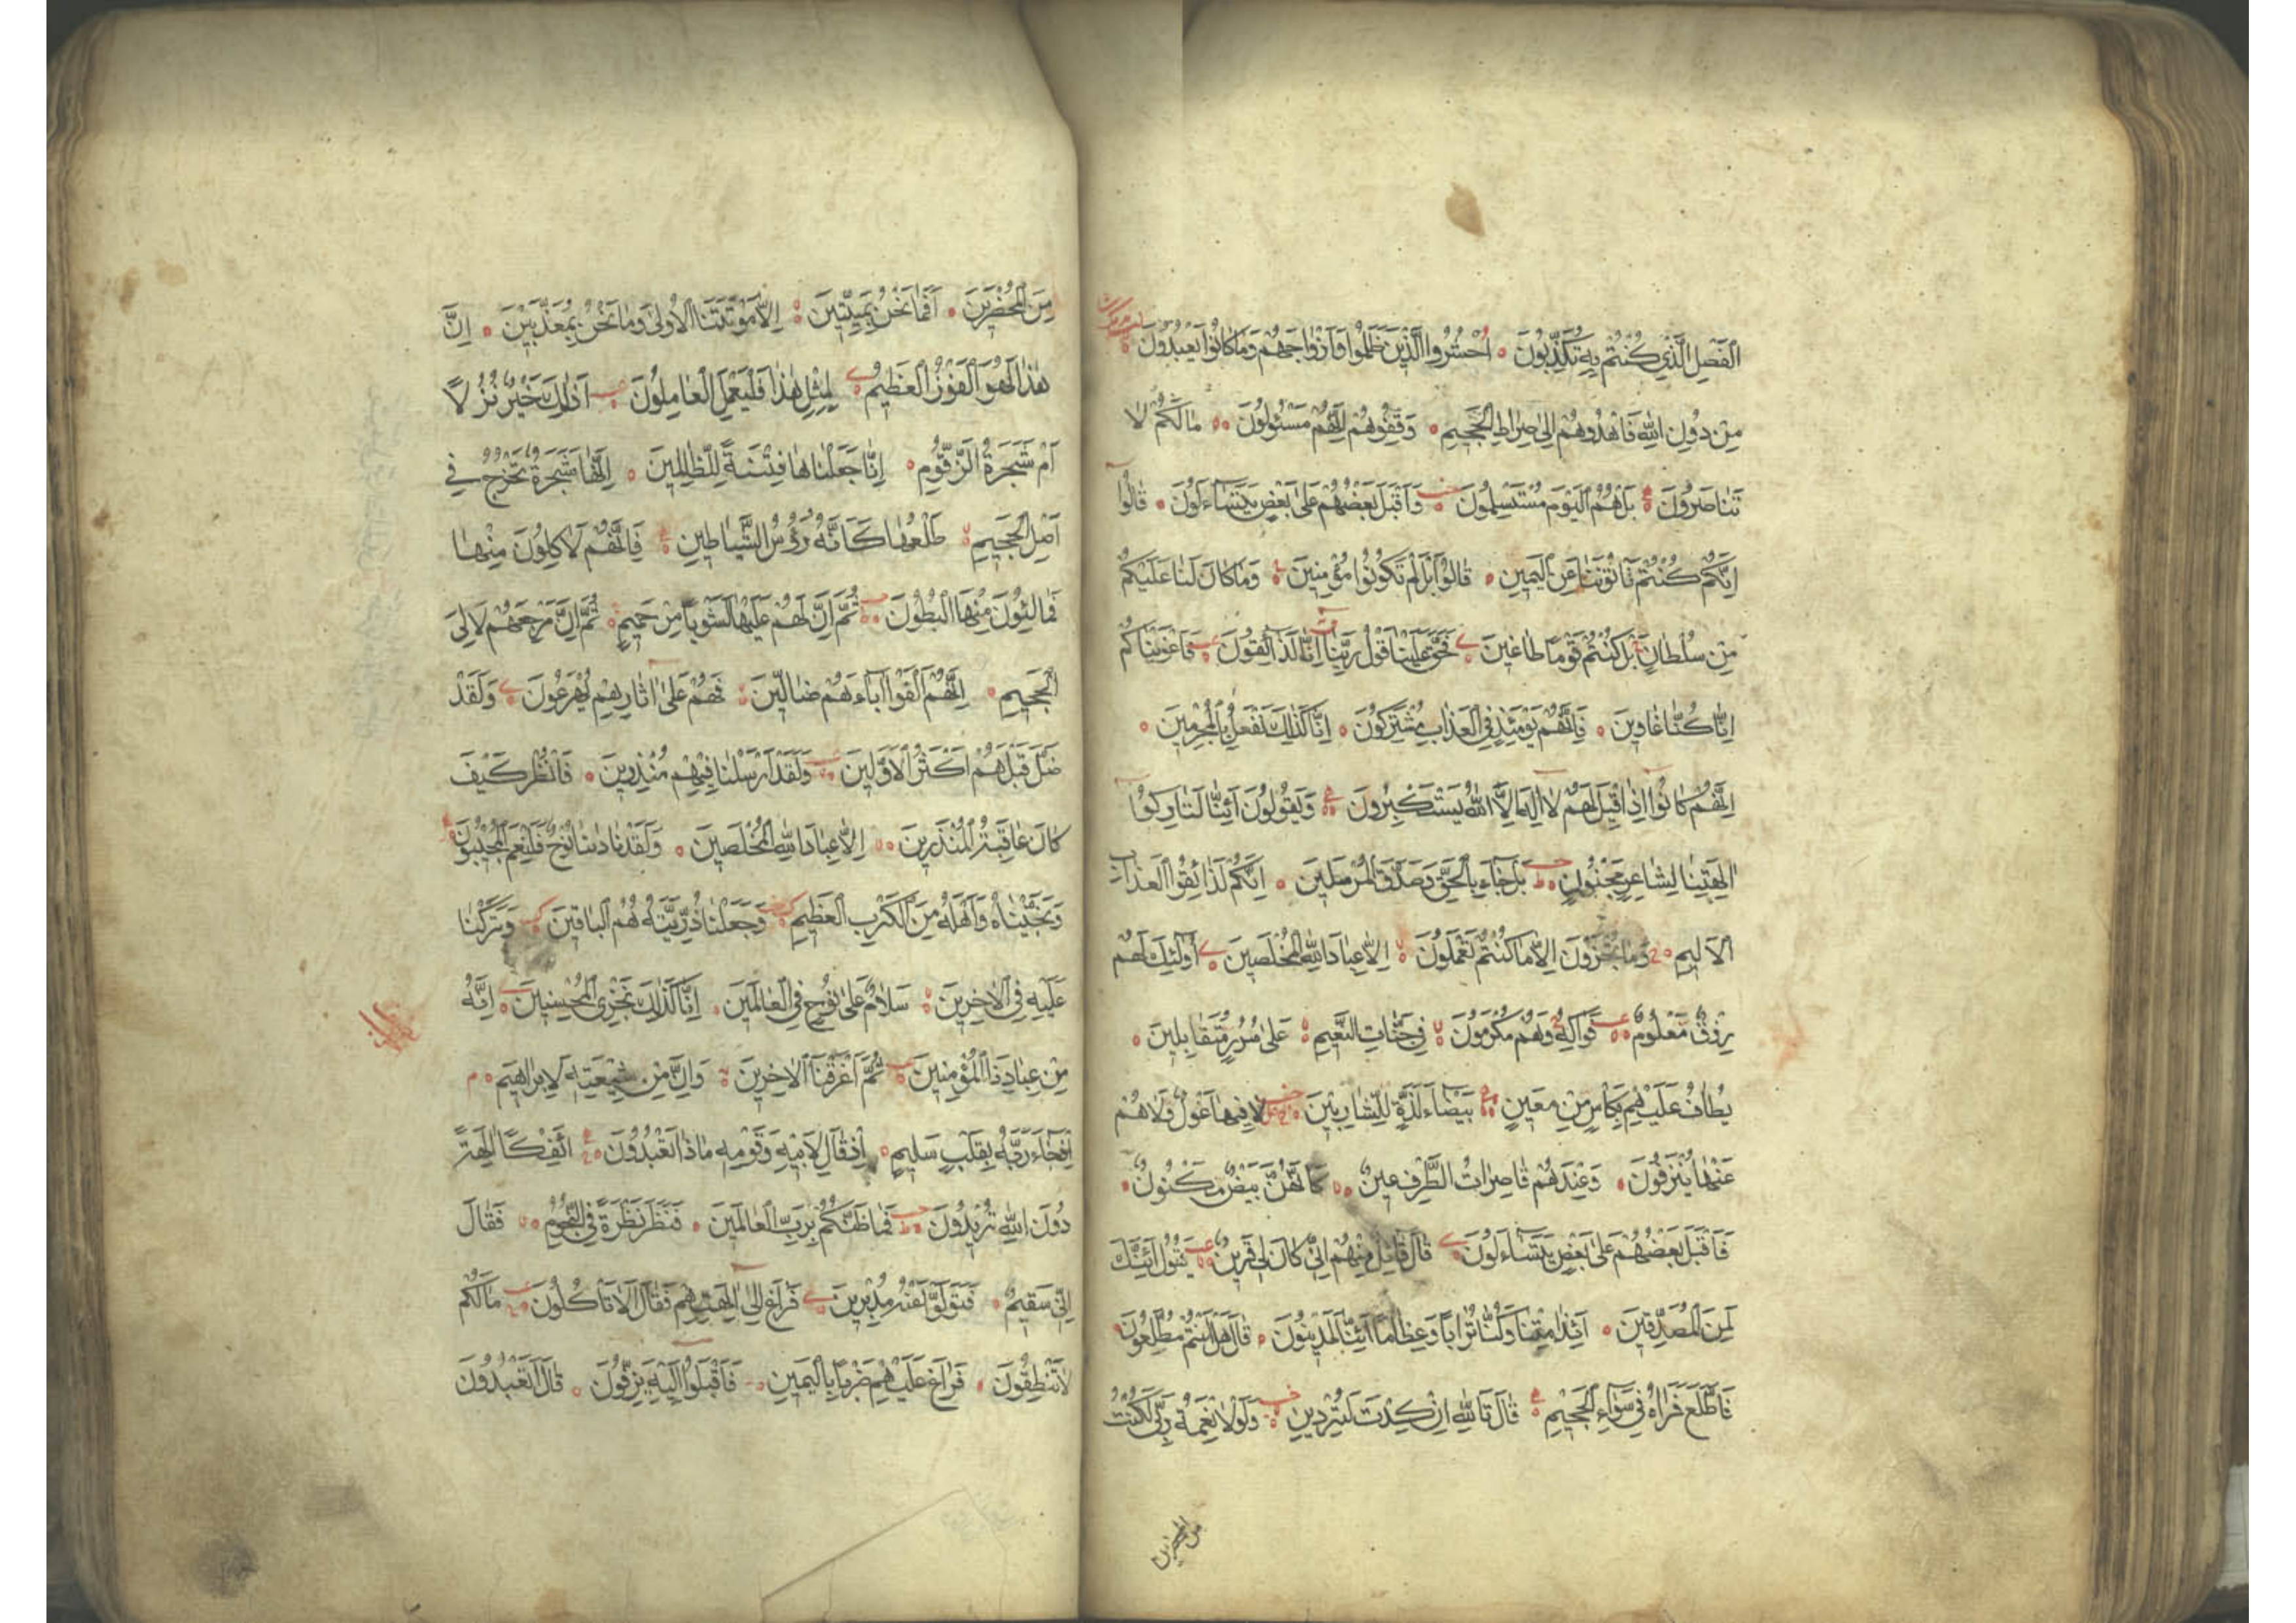 الْفَصْلِ الَّذِي كُنْتُمْ بِهِ تُكَذِّبُونَ اُحْشُرُوا الَّذِينَ ظَلَمُوا وَاَزْوَاجَهُمْ وَمَا كَانُوا يَعْبُدُونَ
مِنْ دُونِ اللّٰهِ فَاهْدُوهُمْ اِلٰى صِرَاطِ الْجَحِيمِ وَقِفُوهُمْ اِنَّهُمْ مَسْئُولُونَ مَا لَكُمْ لَا
تَنَاصَرُونَ بَلْ هُمُ الْيَوْمَ مُسْتَسْلِمُونَ وَاَقْبَلَ بَعْضُهُمْ عَلٰى بَعْضٍ يَتَسَاءَلُونَ قَالُوا
اِنَّكُمْ كُنْتُمْ تَاْتُونَنَا عَنِ الْيَمِينِ قَالُوا بَلْ لَمْ تَكُونُوا مُؤْمِنِينَ وَمَا كَانَ لَنَا عَلَيْكُمْ
مِنْ سُلْطَانٍ بَلْ كُنْتُمْ قَوْمًا طَاغِينَ فَحَقَّ عَلَيْنَا قَوْلُ رَبِّنَا اِنَّا لَذَائِقُونَ فَاَغْوَيْنَاكُمْ
اِنَّا كُنَّا غَاوِينَ فَاِنَّهُمْ يَوْمَئِذٍ فِي الْعَذَابِ مُشْتَرِكُونَ اِنَّا كَذٰلِكَ نَفْعَلُ بِالْمُجْرِمِينَ
اِنَّهُمْ كَانُوا اِذَا قِيلَ لَهُمْ لَا اِلٰهَ اِلَّا اللّٰهُ يَسْتَكْبِرُونَ وَيَقُولُونَ اَئِنَّا لَتَارِكُوا
اٰلِهَتِنَا لِشَاعِرٍ مَجْنُونٍ بَلْ جَاءَ بِالْحَقِّ وَصَدَّقَ الْمُرْسَلِينَ اِنَّكُمْ لَذَائِقُوا الْعَذَابِ
الْاَلِيمِ وَمَا تُجْزَوْنَ اِلَّا مَا كُنْتُمْ تَعْمَلُونَ اِلَّا عِبَادَ اللّٰهِ الْمُخْلَصِينَ اُولٰئِكَ لَهُمْ
رِزْقٌ مَعْلُومٌ فَوَاكِهُ وَهُمْ مُكْرَمُونَ فِي جَنَّاتِ النَّعِيمِ عَلٰى سُرُرٍ مُتَقَابِلِينَ
يُطَافُ عَلَيْهِمْ بِكَاْسٍ مِنْ مَعِينٍ بَيْضَاءَ لَذَّةٍ لِلشَّارِبِينَ لَا فِيهَا غَوْلٌ وَلَا هُمْ
عَنْهَا يُنْزَفُونَ وَعِنْدَهُمْ قَاصِرَاتُ الطَّرْفِ عِينٌ كَاَنَّهُنَّ بَيْضٌ مَكْنُونٌ
فَاَقْبَلَ بَعْضُهُمْ عَلٰى بَعْضٍ يَتَسَاءَلُونَ قَالَ قَائِلٌ مِنْهُمْ اِنِّي كَانَ لِي قَرِينٌ يَقُولُ اَئِنَّكَ
لَمِنَ الْمُصَدِّقِينَ اَئِذَا مِتْنَا وَكُنَّا تُرَابًا وَعِظَامًا اَئِنَّا لَمَدِينُونَ قَالَ هَلْ اَنْتُمْ مُطَّلِعُونَ
فَاطَّلَعَ فَرَاٰهُ فِي سَوَاءِ الْجَحِيمِ قَالَ تَاللّٰهِ اِنْ كِدْتَ لَتُرْدِينِ وَلَوْلَا نِعْمَةُ رَبِّي لَكُنْتُ
من المحضرين
مِنَ الْمُحْضَرِينَ اَفَمَا نَحْنُ بِمَيِّتِينَ اِلَّا مَوْتَتَنَا الْاُولٰى وَمَا نَحْنُ بِمُعَذَّبِينَ اِنَّ
هٰذَا لَهُوَ الْفَوْزُ الْعَظِيمُ لِمِثْلِ هٰذَا فَلْيَعْمَلِ الْعَامِلُونَ اَذٰلِكَ خَيْرٌ نُزُلًا
اَمْ شَجَرَةُ الزَّقُّومِ اِنَّا جَعَلْنَاهَا فِتْنَةً لِلظَّالِمِينَ اِنَّهَا شَجَرَةٌ تَخْرُجُ فِي
اَصْلِ الْجَحِيمِ طَلْعُهَا كَاَنَّهُ رُؤُسُ الشَّيَاطِينِ فَاِنَّهُمْ لَاٰكِلُونَ مِنْهَا
فَمَالِئُونَ مِنْهَا الْبُطُونَ ثُمَّ اِنَّ لَهُمْ عَلَيْهَا لَشَوْبًا مِنْ حَمِيمٍ ثُمَّ اِنَّ مَرْجِعَهُمْ لَاِلَى
الْجَحِيمِ اِنَّهُمْ اَلْفَوْا اٰبَاءَهُمْ ضَالِّينَ فَهُمْ عَلٰى اٰثَارِهِمْ يُهْرَعُونَ وَلَقَدْ
ضَلَّ قَبْلَهُمْ اَكْثَرُ الْاَوَّلِينَ وَلَقَدْ اَرْسَلْنَا فِيهِمْ مُنْذِرِينَ فَانْظُرْ كَيْفَ
كَانَ عَاقِبَةُ الْمُنْذَرِينَ اِلَّا عِبَادَ اللّٰهِ الْمُخْلَصِينَ وَلَقَدْ نَادٰينَا نُوحٌ فَلَنِعْمَ الْمُجِيبُونَ
وَنَجَّيْنَاهُ وَاَهْلَهُ مِنَ الْكَرْبِ الْعَظِيمِ وَجَعَلْنَا ذُرِّيَّتَهُ هُمُ الْبَاقِينَ وَتَرَكْنَا
عَلَيْهِ فِي الْاٰخِرِينَ سَلَامٌ عَلٰى نُوحٍ فِي الْعَالَمِينَ اِنَّا كَذٰلِكَ نَجْزِي الْمُحْسِنِينَ اِنَّهُ
مِنْ عِبَادِنَا الْمُؤْمِنِينَ ثُمَّ اَغْرَقْنَا الْاٰخَرِينَ وَاِنَّ مِنْ شِيعَتِهِ لَاِبْرَاهِيمَ
اِذْ جَاءَ رَبَّهُ بِقَلْبٍ سَلِيمٍ اِذْ قَالَ لِاَبِيهِ وَقَوْمِهِ مَاذَا تَعْبُدُونَ اَئِفْكًا اٰلِهَةً
دُونَ اللّٰهِ تُرِيدُونَ فَمَا ظَنُّكُمْ بِرَبِّ الْعَالَمِينَ فَنَظَرَ نَظْرَةً فِي النُّجُومِ فَقَالَ
اِنِّي سَقِيمٌ فَتَوَلَّوْا عَنْهُ مُدْبِرِينَ فَرَاغَ اِلٰى اٰلِهَتِهِمْ فَقَالَ اَلَا تَاْكُلُونَ مَا لَكُمْ
لَا تَنْطِقُونَ فَرَاغَ عَلَيْهِمْ ضَرْبًا بِالْيَمِينِ فَاَقْبَلُوا اِلَيْهِ يَزِفُّونَ قَالَ اَتَعْبُدُونَ